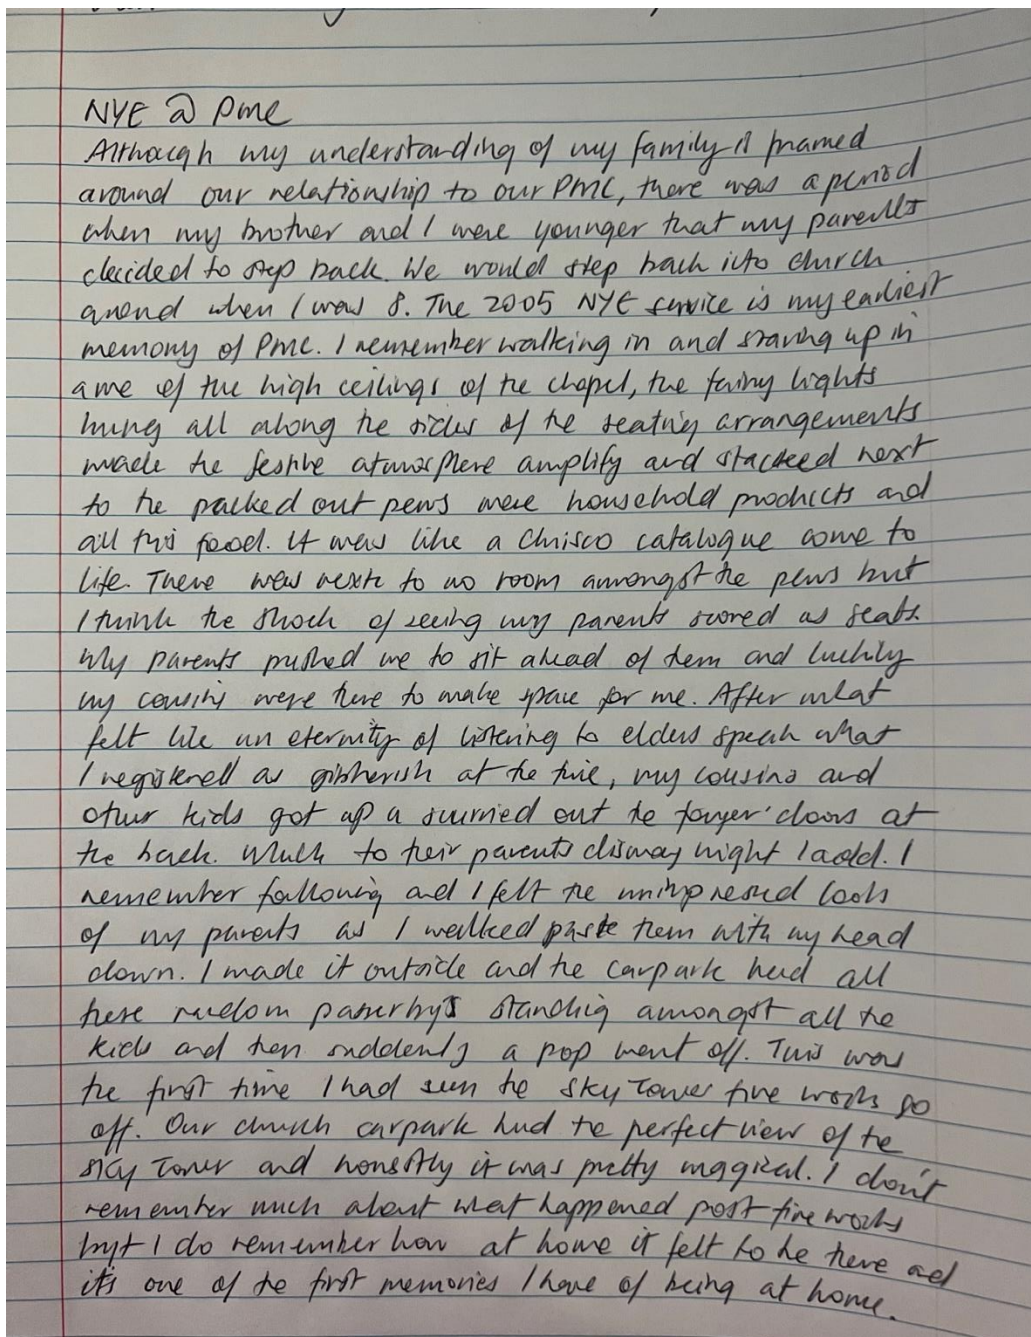 NYE @ PMC
Although my understanding of my family is framed
around our relationship to our PMC, there was a period
when my brother and I were younger that my parents
decided to step back. We would step back into church
around when I was 8. The 2005 NYE service is my earliest
memory of PMC. I remember walking in and staring up in
awe of the high ceilings of the chapel, the fairy lights
hung all along the sides of the seating arrangements
made the festive atmosphere amplify and stacked next
to the packed out pews were household products and
all this food. It was like a Chrisco catalogue come to
life. There was next to no room amongst the pews but
I think the shock of seeing my parents scored us seats.
My parents pushed me to sit ahead of them and luckily
my cousins were there to make space for me. After what
felt like an eternity of listening to elders speak what
I registered as gibberish at the time, my cousins and
other kids got up a scurried out the foyer doors at
the back. Much to their parents dismay might I add. I
remember following and I felt the unimpressed looks
of my parents as I walked paste them with my head
down. I made it outside and the carpark had all
these random passerbys standing amongst all the
kids and then suddenly a pop went off. This was
the first time I had seen the sky tower fire works go
off. Our church carpark had the perfect view of the
sky tower and honestly it was pretty magical. I don't
remember much about what happened post fire works
but I do remember how at home it felt to be there and
it's one of the first memories I have of being at home.